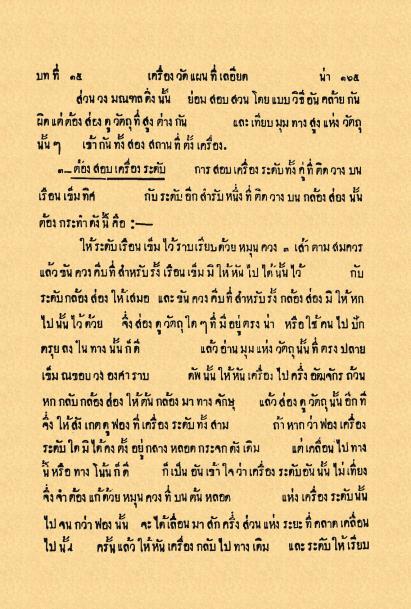 บทที่ ๑๕ เครื่อง วัด แผน ที่ เลอียด น่า ๑๖๕
ส่วน วง มณฑล ดิ่ง นั้น ย่อม สอบ สวน โดย แบบ วิธี อัน คล้าย กัน
ผิด แต่ ต้อง ส่อง ดู วัตถุ ที่ สูง ต่าง กัน และ เทียบ มุม ทาง สูง แห่ง วัตถุ
นั้น ๆ เข้า กัน ทั้ง สอง สถาน ที่ ตั้ง เครื่อง.
๓—ต้อง สอบ เครื่อง ระดับ การ สอบ เครื่อง ระดับ ทั้ง คู่ ที่ ติด วาง บน
เรือน เข็ม ทิศ กับ ระดับ อีก สำรับ หนึ่ง ที่ ติด วาง บน กล้อง ส่อง นั้น
ต้อง กระทำ ดัง นี้ คือ :—
ให้ ระดับ เรือน เข็ม ไว้ ราบ เรียบ ด้วย หมุน ควง ๓ เส้า ตาม สมควร
แล้ว ขัน ควง คีบ ที่ สำหรับ รั้ง เรือน เข็ม มิ ให้ หัน ไป ได้ นั้น ไว้ กับ
ระดับ กล้อง ส่อง ให้ เสมอ และ ขัน ควง คีบ ที่ สำหรับ รั้ง กล้อง ส่อง มิ ให้ หก
ไป นั้น ไว้ ด้วย จึ่ง ส่อง ดู วัตถุ ใด ๆ ที่ มี อยู่ ตรง น่า หรือ ใช้ คน ไป ปัก
ครุย ลง ใน ทาง นั้น ก็ ดี แล้ว อ่าน มุม แห่ง วัตถุ นั้น ที่ ตรง ปลาย
เข็ม ณขอบ วง องศา ราบ ดัง นั้น ให้ หัน เครื่อง ไป ครึ่ง อัฒจักร ถ้วน
หก กลับ กล้อง ส่อง ให้ ต้น กล้อง มา ทาง จักษุ แล้ว ส่อง ดู วัตถุ นั้น อีก ที
จึ่ง ให้ สังเกต ดู ฟอง ที่ เครื่อง ระดับ ทั้ง สาม ถ้า หาก ว่า ฟอง เครื่อง
ระดับ ใด มิ ได้ คง ตั้ง อยู่ กลาง หลอด กระจก ดัง เดิม แต่ เคลื่อน ไป ทาง
นี้ หรือ ทาง โน้น ก็ ดี ก็ เป็น อัน เข้า ใจ ว่า เครื่อง ระดับ อัน นั้น ไม่ เที่ยง
จึ่ง จำ ต้อง แก้ ด้วย หมุน ควง ที่ บน ต้น หลอด แห่ง เครื่อง ระดับ นั้น
ไป จน กว่า ฟอง นั้น จะ ได้ เลื่อน มา สัก ครึ่ง ส่วน แห่ง ระยะ ที่ คลาด เคลื่อน
ไป นั้น ครั้น แล้ว ให้ หัน เครื่อง กลับ ไป ทาง เดิม และ ระดับ ให้ เรียบ